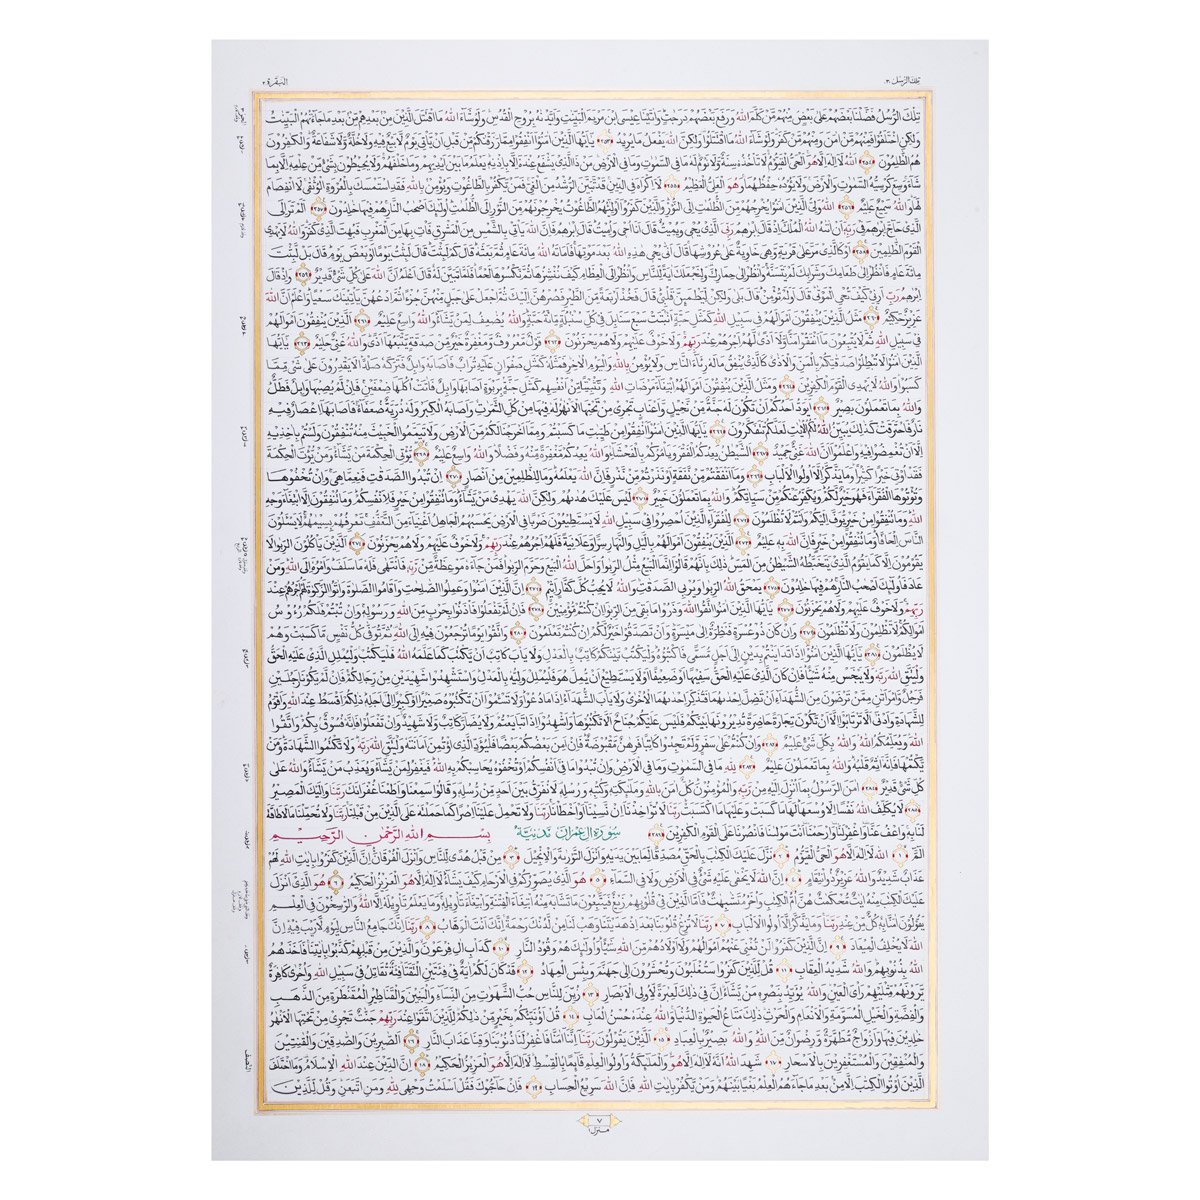 تلك الرسل ٣
البقرة ٢
تلك الرسل فضلنا بعضهم على بعض منهم من كلم الله ورفع بعضهم درجت واتينا عيسى ابن مريم البينت وايدنه بروح القدس ولو شاء الله ما اقتتل الذين من بعدهم من بعد ما جاءتهم البينت
ولكن اختلفوا فمنهم من امن ومنهم من كفر ولو شاء الله ما اقتتلوا ولكن الله يفعل ما يريد ٢٥٣ يايها الذين امنوا انفقوا مما رزقنكم من قبل ان ياتي يوم لا بيع فيه ولا خلة ولا شفاعة والكفرون
هم الظلمون ٢٥٤ الله لا اله الا هو الحي القيوم لا تاخذه سنة ولا نوم له ما في السموت وما في الارض من ذا الذي يشفع عنده الا باذنه يعلم ما بين ايديهم وما خلفهم ولا يحيطون بشيء من علمه الا بما
شاء وسع كرسيه السموت والارض ولا يوده حفظهما وهو العلي العظيم ٢٥٥ لا اكراه في الدين قد تبين الرشد من الغي فمن يكفر بالطاغوت ويؤمن بالله فقد استمسك بالعروة الوثقى لا انفصام
لها والله سميع عليم ٢٥٦ الله ولي الذين امنوا يخرجهم من الظلمت الى النور والذين كفروا اوليئهم الطاغوت يخرجونهم من النور الى الظلمت اولئك اصحب النار هم فيها خلدون ٢٥٧ الم تر الى
الذي حاج ابرهم في ربه ان اته الله الملك اذ قال ابرهم ربي الذي يحي ويميت قال انا احي واميت قال ابرهم فان الله ياتي بالشمس من المشرق فات بها من المغرب فبهت الذي كفر والله لا يهدي
القوم الظلمين ٢٥٨ او كالذي مر على قرية وهي خاوية على عروشها قال انى يحي هذه الله بعد موتها فاماته الله مائة عام ثم بعثه قال كم لبثت قال لبثت يوما او بعض يوم قال بل لبثت
مائة عام فانظر الى طعامك وشرابك لم يتسنه وانظر الى حمارك ولنجعلك اية للناس وانظر الى العظام كيف ننشزها ثم نكسوها لحما فلما تبين له قال اعلم ان الله على كل شيء قدير ٢٥٩ واذ قال
ابرهم رب ارني كيف تحي الموتى قال اولم تؤمن قال بلى ولكن ليطمئن قلبي قال فخذ اربعة من الطير فصرهن اليك ثم اجعل على كل جبل منهن جزءا ثم ادعهن ياتينك سعيا واعلم ان الله
عزيز حكيم ٢٦٠ مثل الذين ينفقون اموالهم في سبيل الله كمثل حبة انبتت سبع سنابل في كل سنبلة مائة حبة والله يضعف لمن يشاء والله واسع عليم ٢٦١ الذين ينفقون اموالهم
في سبيل الله ثم لا يتبعون ما انفقوا منا ولا اذى لهم اجرهم عند ربهم ولا خوف عليهم ولا هم يحزنون ٢٦٢ قول معروف ومغفرة خير من صدقة يتبعها اذى والله غني حليم ٢٦٣ يايها
الذين امنوا لا تبطلوا صدقتكم بالمن والاذى كالذي ينفق ماله رئاء الناس ولا يؤمن بالله واليوم الاخر فمثله كمثل صفوان عليه تراب فاصابه وابل فتركه صلدا لا يقدرون على شيء مما
كسبوا والله لا يهدي القوم الكفرين ٢٦٤ ومثل الذين ينفقون اموالهم ابتغاء مرضات الله وتثبيتا من انفسهم كمثل جنة بربوة اصابها وابل فاتت اكلها ضعفين فان لم يصبها وابل فطل
والله بما تعملون بصير ٢٦٥ ايود احدكم ان تكون له جنة من نخيل واعناب تجري من تحتها الانهر له فيها من كل الثمرت واصابه الكبر وله ذرية ضعفاء فاصابها اعصار فيه
نار فاحترقت كذلك يبين الله لكم الايت لعلكم تتفكرون ٢٦٦ يايها الذين امنوا انفقوا من طيبت ما كسبتم ومما اخرجنا لكم من الارض ولا تيمموا الخبيث منه تنفقون ولستم باخذيه
الا ان تغمضوا فيه واعلموا ان الله غني حميد ٢٦٧ الشيطن يعدكم الفقر ويامركم بالفحشاء والله يعدكم مغفرة منه وفضلا والله واسع عليم ٢٦٨ يؤتي الحكمة من يشاء ومن يؤت الحكمة
فقد اوتي خيرا كثيرا وما يذكر الا اولوا الالباب ٢٦٩ وما انفقتم من نفقة او نذرتم من نذر فان الله يعلمه وما للظلمين من انصار ٢٧٠ ان تبدوا الصدقت فنعما هي وان تخفوها
وتؤتوها الفقراء فهو خير لكم ويكفر عنكم من سياتكم والله بما تعملون خبير ٢٧١ ليس عليك هدىهم ولكن الله يهدي من يشاء وما تنفقوا من خير فلانفسكم وما تنفقون الا ابتغاء وجه
الله وما تنفقوا من خير يوف اليكم وانتم لا تظلمون ٢٧٢ للفقراء الذين احصروا في سبيل الله لا يستطيعون ضربا في الارض يحسبهم الجاهل اغنياء من التعفف تعرفهم بسيمهم لا يسئلون
الناس الحافا وما تنفقوا من خير فان الله به عليم ٢٧٣ الذين ينفقون اموالهم باليل والنهار سرا وعلانية فلهم اجرهم عند ربهم ولا خوف عليهم ولا هم يحزنون ٢٧٤ الذين ياكلون الربوا لا
يقومون الا كما يقوم الذي يتخبطه الشيطن من المس ذلك بانهم قالوا انما البيع مثل الربوا واحل الله البيع وحرم الربوا فمن جاءه موعظة من ربه فانتهى فله ما سلف وامره الى الله ومن
عاد فاولئك اصحب النار هم فيها خلدون ٢٧٥ يمحق الله الربوا ويربي الصدقت والله لا يحب كل كفار اثيم ٢٧٦ ان الذين امنوا وعملوا الصلحت واقاموا الصلوة واتوا الزكوة لهم اجرهم عند
ربهم ولا خوف عليهم ولا هم يحزنون ٢٧٧ يايها الذين امنوا اتقوا الله وذروا ما بقي من الربوا ان كنتم مؤمنين ٢٧٨ فان لم تفعلوا فاذنوا بحرب من الله ورسوله وان تبتم فلكم رءوس
اموالكم لا تظلمون ولا تظلمون ٢٧٩ وان كان ذو عسرة فنظرة الى ميسرة وان تصدقوا خير لكم ان كنتم تعلمون ٢٨٠ واتقوا يوما ترجعون فيه الى الله ثم توفى كل نفس ما كسبت وهم
لا يظلمون ٢٨١ يايها الذين امنوا اذا تداينتم بدين الى اجل مسمى فاكتبوه وليكتب بينكم كاتب بالعدل ولا ياب كاتب ان يكتب كما علمه الله فليكتب وليملل الذي عليه الحق
وليتق الله ربه ولا يبخس منه شيئا فان كان الذي عليه الحق سفيها او ضعيفا او لا يستطيع ان يمل هو فليملل وليه بالعدل واستشهدوا شهيدين من رجالكم فان لم يكونا رجلين
فرجل وامراتن ممن ترضون من الشهداء ان تضل احدىهما فتذكر احدىهما الاخرى ولا ياب الشهداء اذا ما دعوا ولا تسئموا ان تكتبوه صغيرا او كبيرا الى اجله ذلكم اقسط عند الله واقوم
للشهادة وادنى الا ترتابوا الا ان تكون تجارة حاضرة تديرونها بينكم فليس عليكم جناح الا تكتبوها واشهدوا اذا تبايعتم ولا يضار كاتب ولا شهيد وان تفعلوا فانه فسوق بكم واتقوا
الله ويعلمكم الله والله بكل شيء عليم ٢٨٢ وان كنتم على سفر ولم تجدوا كاتبا فرهن مقبوضة فان امن بعضكم بعضا فليؤد الذي اؤتمن امانته وليتق الله ربه ولا تكتموا الشهادة ومن
يكتمها فانه اثم قلبه والله بما تعملون عليم ٢٨٣ لله ما في السموت وما في الارض وان تبدوا ما في انفسكم او تخفوه يحاسبكم به الله فيغفر لمن يشاء ويعذب من يشاء والله على
كل شيء قدير ٢٨٤ امن الرسول بما انزل اليه من ربه والمؤمنون كل امن بالله وملئكته وكتبه ورسله لا نفرق بين احد من رسله وقالوا سمعنا واطعنا غفرانك ربنا واليك المصير
٢٨٥ لا يكلف الله نفسا الا وسعها لها ما كسبت وعليها ما اكتسبت ربنا لا تؤاخذنا ان نسينا او اخطانا ربنا ولا تحمل علينا اصرا كما حملته على الذين من قبلنا ربنا ولا تحملنا ما لا طاقة
لنا به واعف عنا واغفر لنا وارحمنا انت مولىنا فانصرنا على القوم الكفرين ٢٨٦ سورة ال عمرن مدنية بسم الله الرحمن الرحيم
الم ١ الله لا اله الا هو الحي القيوم ٢ نزل عليك الكتب بالحق مصدقا لما بين يديه وانزل التورىة والانجيل ٣ من قبل هدى للناس وانزل الفرقان ان الذين كفروا بايت الله لهم
عذاب شديد والله عزيز ذو انتقام ٤ ان الله لا يخفى عليه شيء في الارض ولا في السماء ٥ هو الذي يصوركم في الارحام كيف يشاء لا اله الا هو العزيز الحكيم ٦ هو الذي انزل
عليك الكتب منه ايت محكمت هن ام الكتب واخر متشبهت فاما الذين في قلوبهم زيغ فيتبعون ما تشابه منه ابتغاء الفتنة وابتغاء تاويله وما يعلم تاويله الا الله والرسخون في العلم
يقولون امنا به كل من عند ربنا وما يذكر الا اولوا الالباب ٧ ربنا لا تزغ قلوبنا بعد اذ هديتنا وهب لنا من لدنك رحمة انك انت الوهاب ٨ ربنا انك جامع الناس ليوم لا ريب فيه ان
الله لا يخلف الميعاد ٩ ان الذين كفروا لن تغني عنهم اموالهم ولا اولادهم من الله شيئا واولئك هم وقود النار ١٠ كداب ال فرعون والذين من قبلهم كذبوا بايتنا فاخذهم
الله بذنوبهم والله شديد العقاب ١١ قل للذين كفروا ستغلبون وتحشرون الى جهنم وبئس المهاد ١٢ قد كان لكم اية في فئتين التقتا فئة تقاتل في سبيل الله واخرى كافرة
يرونهم مثليهم راي العين والله يؤيد بنصره من يشاء ان في ذلك لعبرة لاولي الابصار ١٣ زين للناس حب الشهوت من النساء والبنين والقناطير المقنطرة من الذهب
والفضة والخيل المسومة والانعام والحرث ذلك متاع الحيوة الدنيا والله عنده حسن الماب ١٤ قل اؤنبئكم بخير من ذلكم للذين اتقوا عند ربهم جنت تجري من تحتها الانهر
خلدين فيها وازواج مطهرة ورضوان من الله والله بصير بالعباد ١٥ الذين يقولون ربنا اننا امنا فاغفر لنا ذنوبنا وقنا عذاب النار ١٦ الصبرين والصدقين والقنتين
والمنفقين والمستغفرين بالاسحار ١٧ شهد الله انه لا اله الا هو والملئكة واولوا العلم قائما بالقسط لا اله الا هو العزيز الحكيم ١٨ ان الدين عند الله الاسلام وما اختلف
الذين اوتوا الكتب الا من بعد ما جاءهم العلم بغيا بينهم ومن يكفر بايت الله فان الله سريع الحساب ١٩ فان حاجوك فقل اسلمت وجهي لله ومن اتبعن وقل للذين
النصف
٧
منزل ١